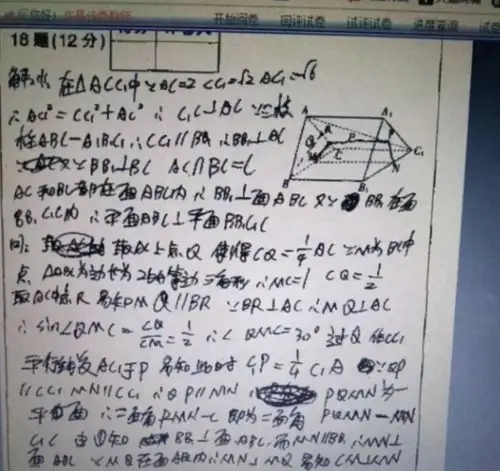 开始阅卷 回评试卷 试评试卷 进度查询 试卷
18题(12分)
在△ACC₁中∵AC=2 CC₁=√2 AC₁=√6
∴AC₁²=CC₁²+AC² ∴C₁C⊥AC ∵三棱
柱ABC-A₁B₁C₁ ∴CC₁∥BB₁ ∴BB₁⊥AC
又∵BB₁⊥BC AC∩BC=C
AC和BC都在面ABC内 ∴BB₁⊥面ABC 又∵BB₁在面
BB₁C₁C内 ∴平面ABC⊥平面BB₁C₁C
取AC上点Q 使得CQ=1/4AC ∵M为BC中
点 △ABC为边长为2的等边三角形 ∴MC=1 CQ=1/2
取AC中点R 易知 MQ∥BR ∵BR⊥AC ∴MQ⊥AC
∴sin∠QMC=CQ/CM=1/2 ∴∠QMC=30° 过Q作CC₁
平行线交AC₁于P 易知此时C₁P=1/4C₁A ∵QP
∥CC₁ MN∥CC₁ ∴QP∥MN PQMN为一
平面 ∴二面角PMN-C即为二面角PQMN-MN
C₁C 由①知 BB₁⊥面ABC 而MN∥BB₁ ∴MN⊥
面ABC ∵MQ在面ABC内 ∴MN⊥MQ 易知CM⊥MN
A
A₁
Q
P
M
C
C₁
N
B
B₁